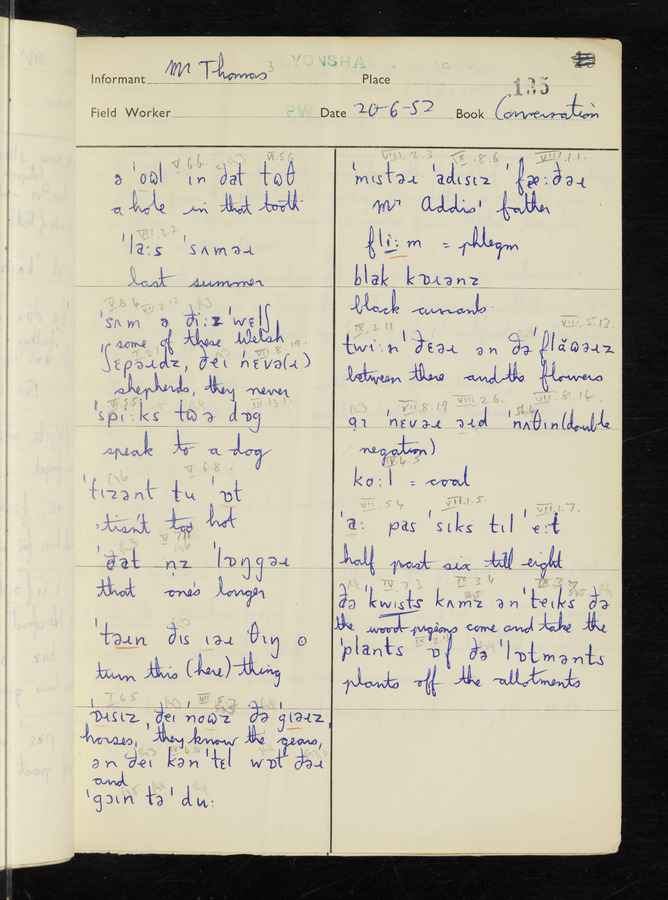 LYONSHALL
Informant Mr Thomas 3 Place
135
Field Worker PW Date 20-6-52 Book Conversation
ə ˈoʊl ɪn ðat tʊθ
a hole in that tooth
VII.2.2
ˈla:s ˈsʌməɹ
last summer
ˈsʌm ə ði:z ˈwɛlʃ
some of these Welsh
ʃɛpəɹdz, ðeɪ nɛvə(ɹ)
shepherds, they never
ˈspi:ks tʊ ə dɒg
speak to a dog
V.6.8.
ˈtɪzənt tu ˈɒt
tisn't too hot
ˈðat n̩z ˈlɒŋgəɹ
that one's longer
ˈtəɹn ðɪs ɪəɹ θɪŋ
turn this (here) thing
I.6.5
ˈɒsɪz, ðeɪ ˈnoʊz ðə ˈgɪəɹz,
horses, they know the gears,
ən ðeɪ kən ˈtɛl wɒt ðəɹ
and
ˈgɔɪn tə ˈdu:
VIII.2.3 IX.8.6 VIII.1.1.
ˈmɪstəɹ ˈadɪsɪz ˈfæ:ðəɹ
Mr Addis' father
fli:m = phlegm
blak kɒɹənz
black currants
IX.2.11 VIII.5.13.
twi:nˈ ðɛəɹ ən ðəˈflăʊəɹz
between there and the flowers
VII.8.19 VIII.2.6. VII.8.14.
nɛvəɹ əɹd ˈnʌθɪn (double
negation)
ko:l = coal
VII.5.4 VII.1.5. VII.1.7.
ˈa: pas ˈsɪks tɪl ˈe:t
half past six till eight
ðə ˈkwɪsts kʌmz ən ˈteɪks ðə
the wood-pigeons come and take the
ˈplants ɒf ðə ˈlɒtmənts
plants off the allotments